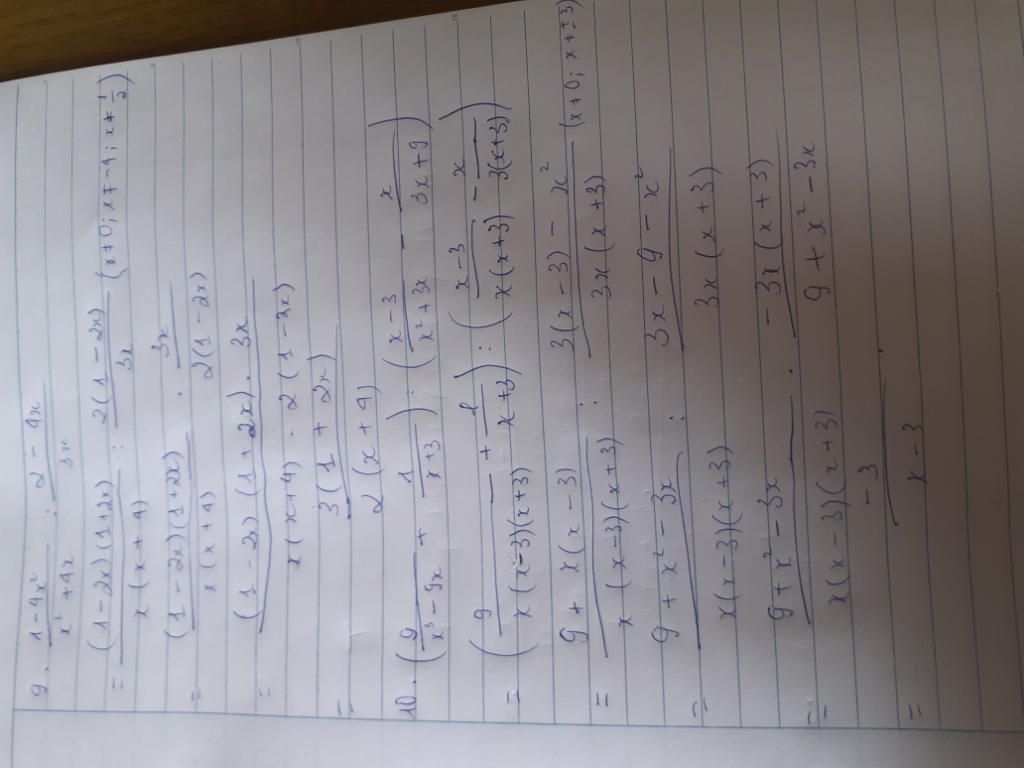 9. (1 - 4x²)/(x² + 4x) : (2 - 4x)/(3x)
= ((1 - 2x)(1 + 2x))/(x(x + 4)) : (2(1 - 2x))/(3x) (x ≠ 0; x ≠ -4; x ≠ 1/2)
= ((1 - 2x)(1 + 2x))/(x(x + 4)) . (3x)/(2(1 - 2x))
= ((1 - 2x)(1 + 2x) . 3x)/(x(x + 4) . 2(1 - 2x))
= (3(1 + 2x))/(2(x + 4))
10. (9/(x³ - 9x) + 1/(x + 3)) : ((x - 3)/(x² + 3x) - x/(3x + 9))
= (9/(x(x - 3)(x + 3)) + 1/(x + 3)) : ((x - 3)/(x(x + 3)) - x/(3(x + 3)))
= (9 + x(x - 3))/(x(x - 3)(x + 3)) : (3(x - 3) - x²)/(3x(x + 3)) (x ≠ 0; x ≠ ±3)
= (9 + x² - 3x)/(x(x - 3)(x + 3)) : (3x - 9 - x²)/(3x(x + 3))
= (9 + x² - 3x)/(x(x - 3)(x + 3)) . (-3x(x + 3))/(9 + x² - 3x)
= (-3)/(x - 3)